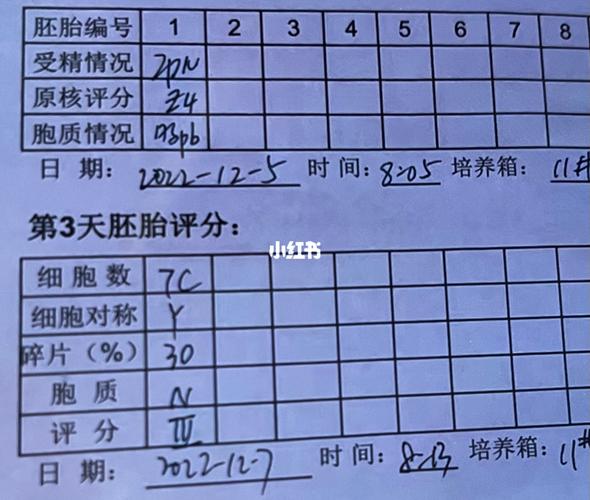 胚胎编号 1 2 3 4 5 6 7 8
受精情况 2PN
原核评分 Z4
胞质情况
日 期: 2022-12-5 时 间: 8:05 培养箱: 11#
第3天胚胎评分:
小红书
细 胞 数 7C
细胞对称 Y
碎片(%) 30
胞 质 N
评 分 III
日 期: 2022-12-7 时 间: 8:13 培养箱: 11#